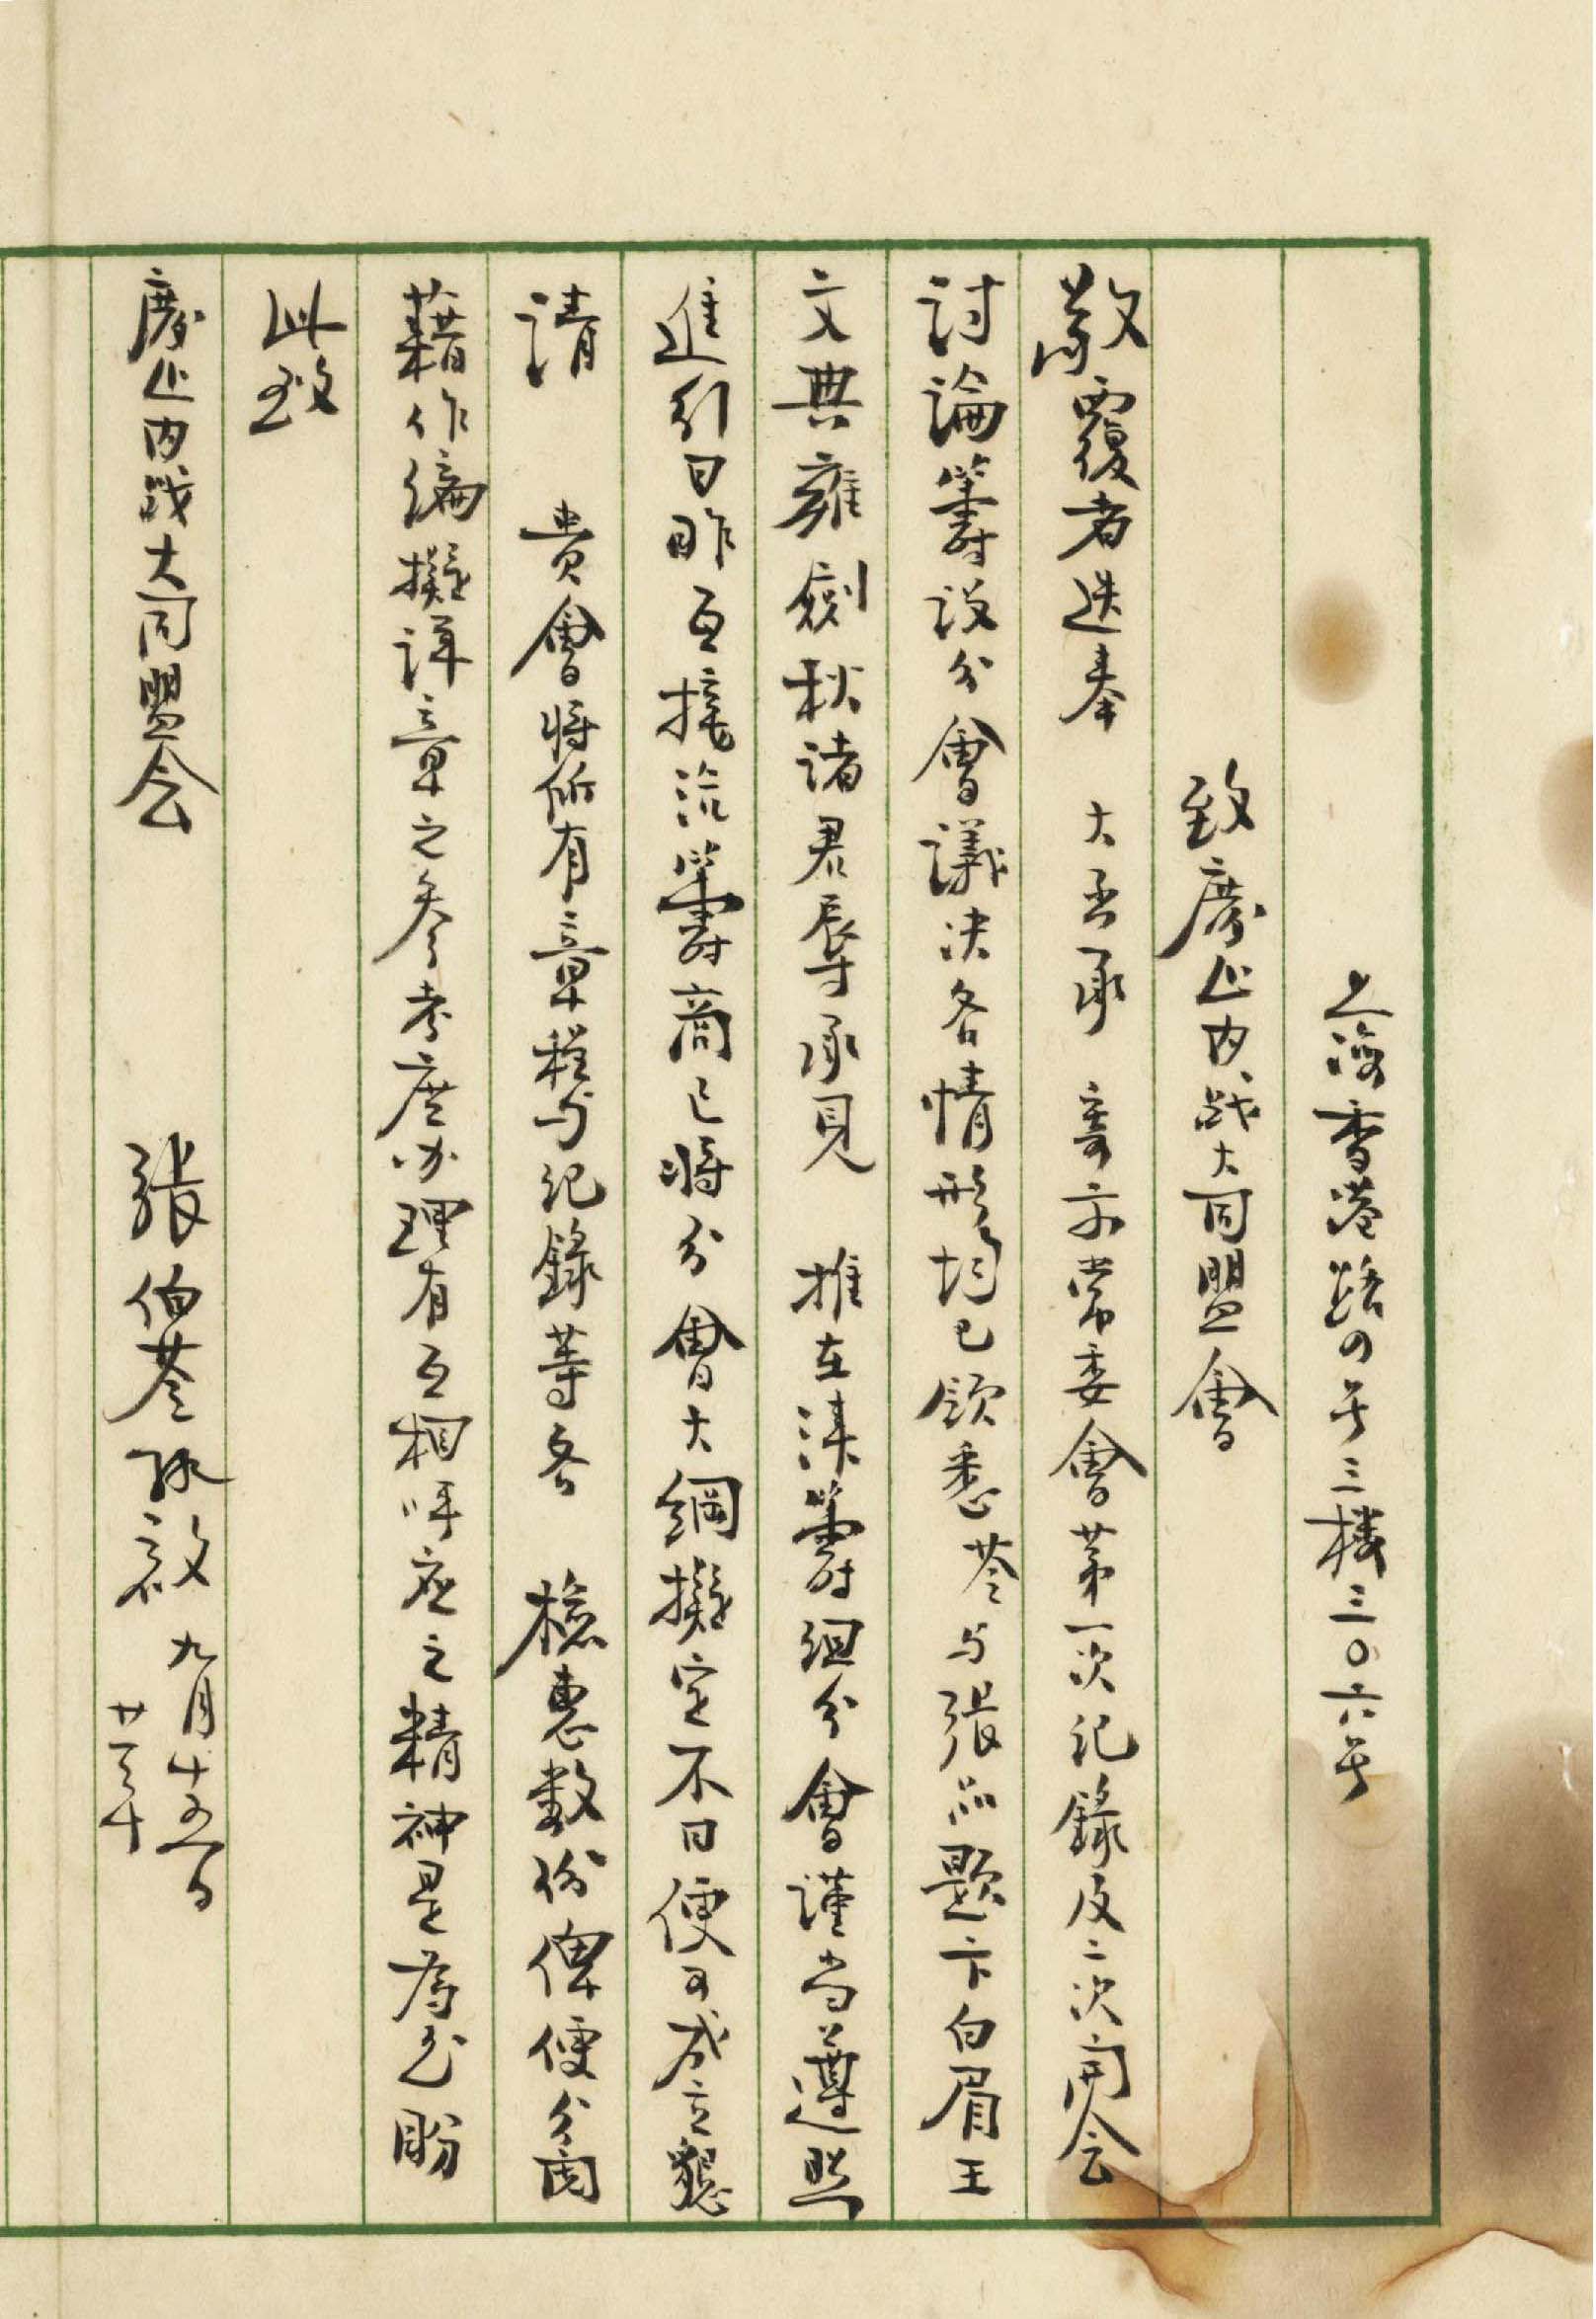 上海香港路四号三楼三〇六号
致廢止内战大同盟會
敬覆者迭奉 大函承 寄示常委會第一次记錄及二次开会
討論籌设分會議决各情形均已领悉苓与張品题卞白眉王
文典雍劍秋诸君辱承見 推在津籌组分會谨当遵照
進行日昨互接洽籌商已将分會大綱擬定不日便可成立懇
请 贵會将所有章程与记錄等各 檢惠数份俾便分阅
藉作编擬詳章之参考庶办理有互相呼应之精神是为至盼
此致
廢止内战大同盟会 張伯苓 敬啟 九月十五日
廿一年